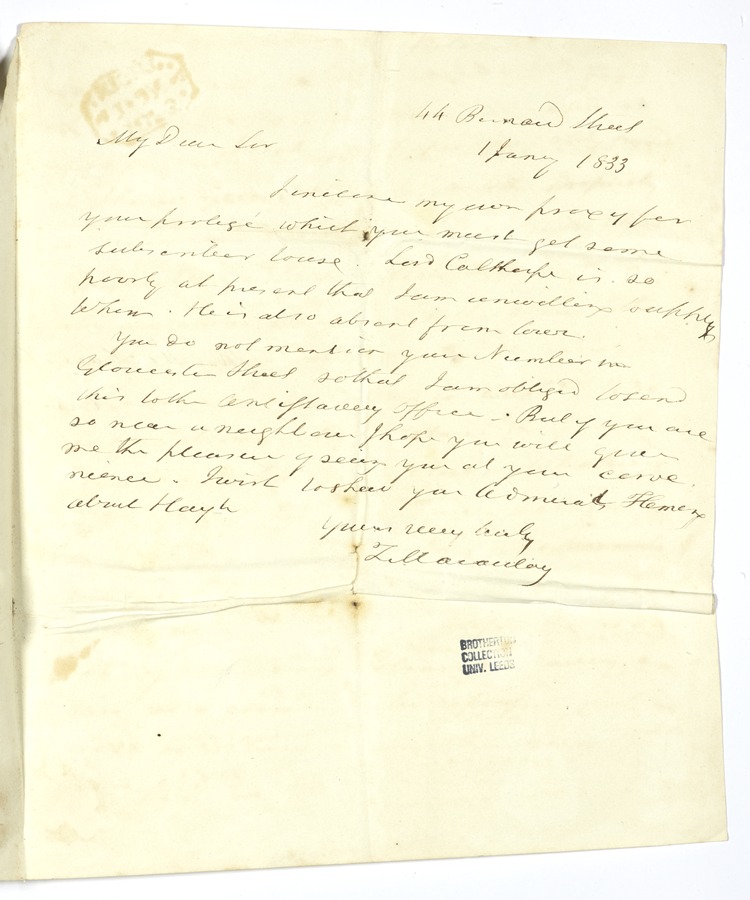 44 Bernard Street
1 Jany 1833
My Dear Sir
I inclose my own proxy for
your protegé which you must get some
subscriber to use. Lord Calthorpe is so
poorly at present that I am unwilling to apply
to him. He is also absent from town.
You do not mention your Number in
Gloucester Street so that I am obliged to send
this to the Antislavery office. But if you are
so near a neighbour I hope you will give
me the pleasure of seeing you at your conve-
nience. I wish to shew you Admiral Fleming
about Hayti
Yours very truly
Z Macaulay
BROTHERTON
COLLECTION
UNIV. LEEDS